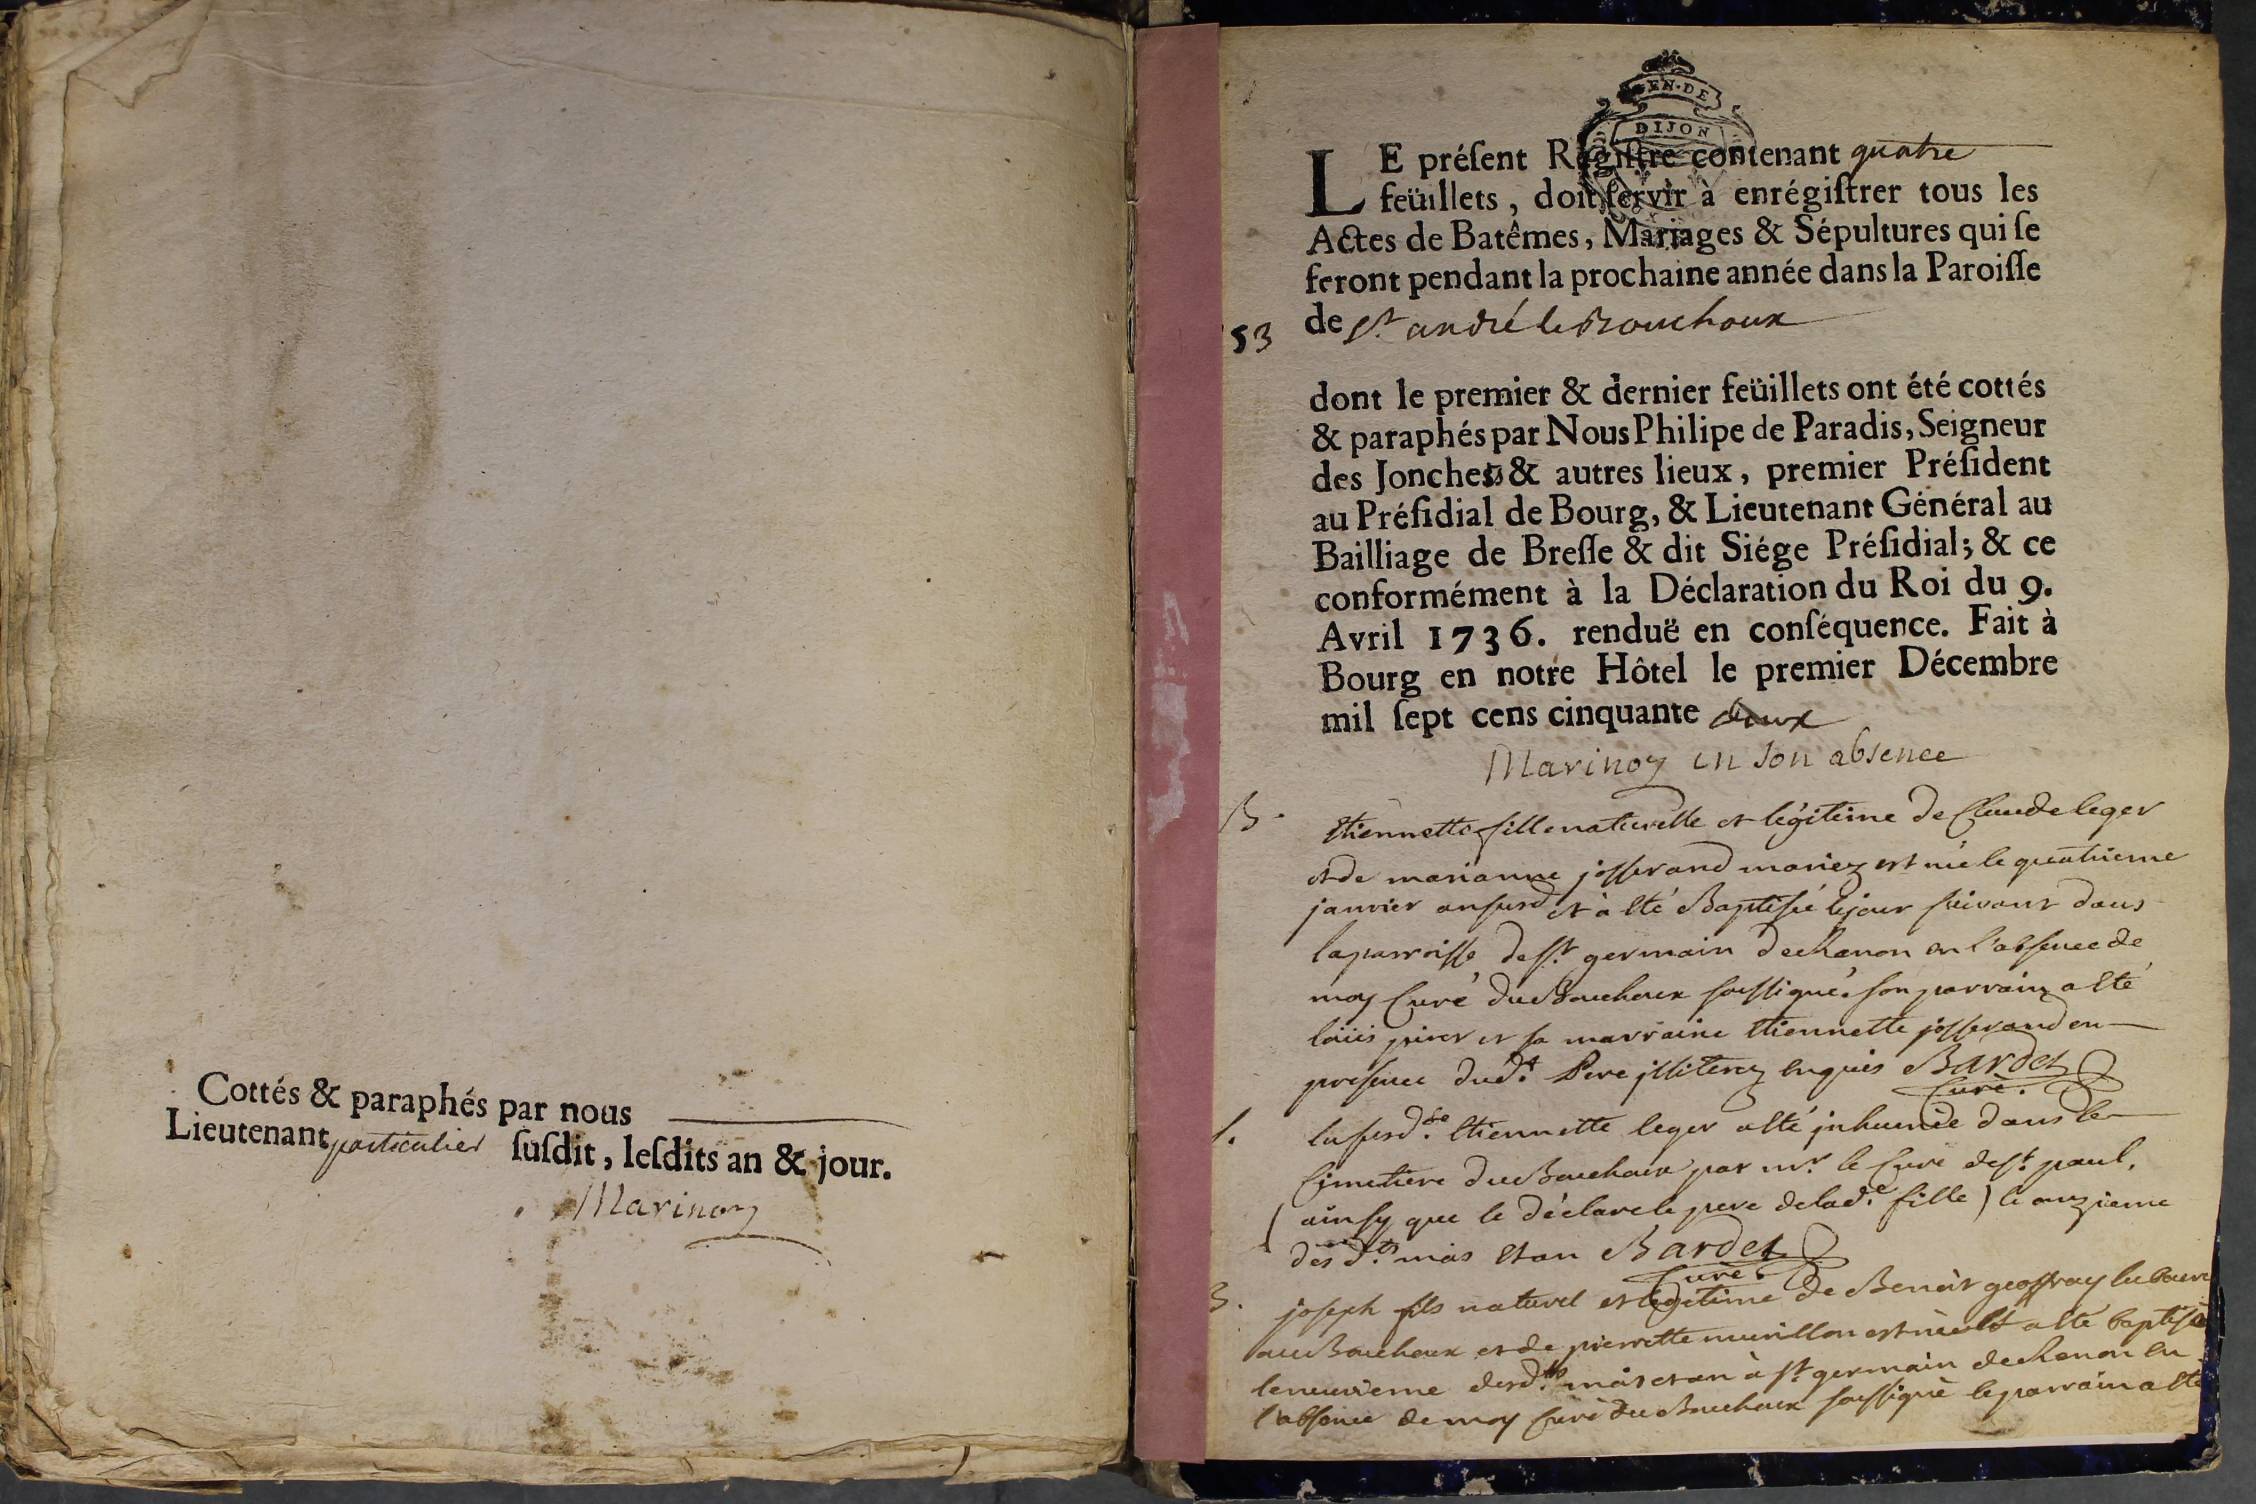 Cottés & paraphés par nous
Lieutenant particulier ſuſdit, leſdits an & jour.
Marinon
EN·DE
DIJON
LE préſent Regiſtre contenant quatre
feüillets, doit ſervir à enrégiſtrer tous les
Actes de Batêmes, Mariages & Sépultures qui ſe
feront pendant la prochaine année dans la Paroiſſe
de St andré le Bouchoux
53
dont le premier & dernier feüillets ont été cottés
& paraphés par Nous Philipe de Paradis, Seigneur
des Jonches & autres lieux, premier Préſident
au Préſidial de Bourg, & Lieutenant Général au
Bailliage de Breſſe & dit Siége Préſidial; & ce
conformément à la Déclaration du Roi du 9.
Avril 1736. renduë en conſéquence. Fait à
Bourg en notre Hôtel le premier Décembre
mil ſept cens cinquante deux
Marinon en son absence
B.
Etiennette fille naturelle et légitime de Claude leger
et de marianne josserand mariez est née le quatrieme
janvier an susd et à eté Baptisée le jour suivant dans
la parroisse de st germain de Renon en l'absence de
moy Curé du Bouchoux soussigné. son parrain a eté
loüis et sa marraine Etiennette josserand en
presence dud. Pere illiterez enquis Bardet
Curé.
S.
la susd.te Etiennette leger a eté inhumée dans le
Cimetiere du Bouchoux par mr. le Curé de st. paul,
(ainsy que le déclare le pere de lad.e fille) le onzieme
des d.ts mois et an Bardet
Curé.
B.
joseph fils naturel et légitime de Benoit geoffray
au Bouchoux et de pierrette murillon est né et a eté baptisé
le neuvieme desd.ts mois et an à st. germain de Renon en
l'absence de moy Curé du Bouchoux soussigné le parrain a eté